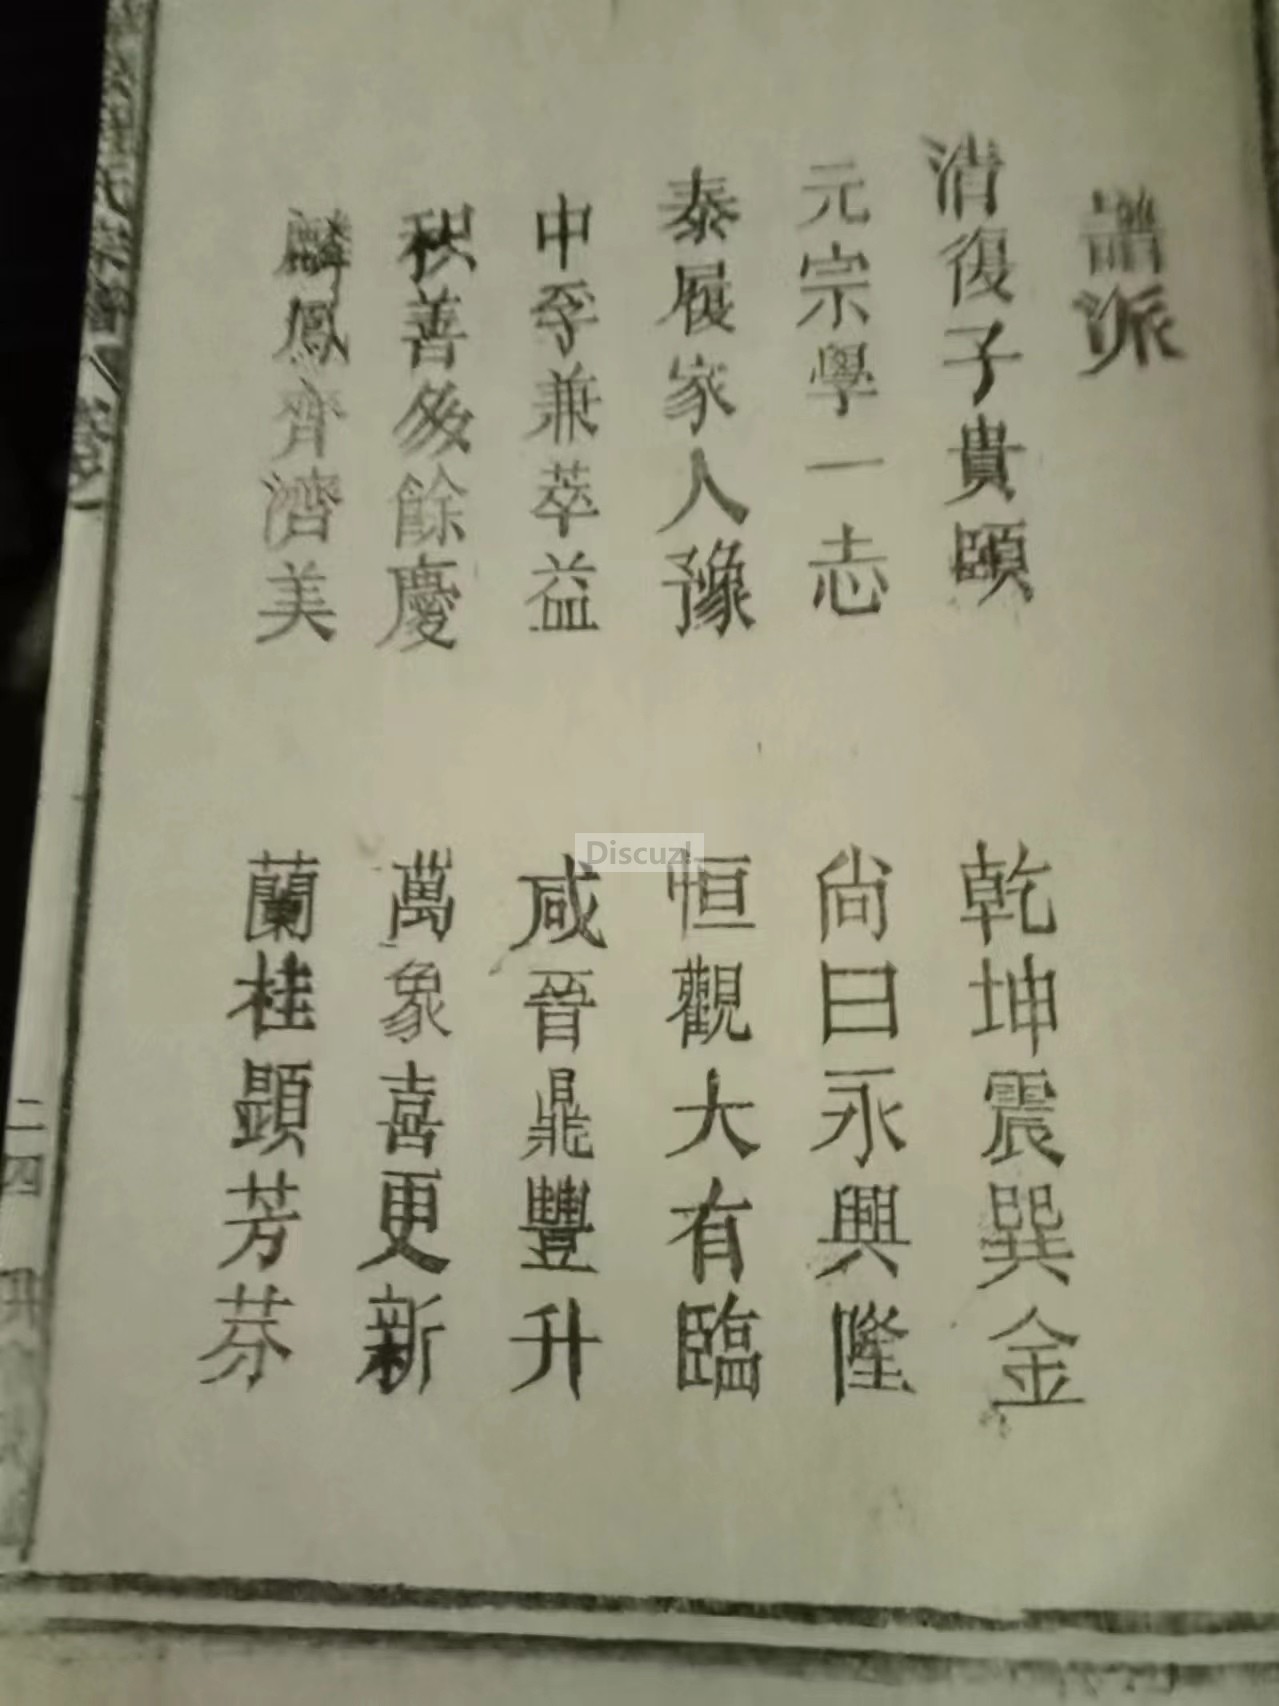 譜派
清復子貴頤
乾坤震巽金
元宗學一志
尙曰永興隆
泰履家人豫
恒觀大有臨
中孚兼萃益
咸晉鼎豐升
秋善多餘慶
萬象喜更新
麟鳳齊濟美
蘭桂顕芳芬
氏宗譜
二四
Discuz!